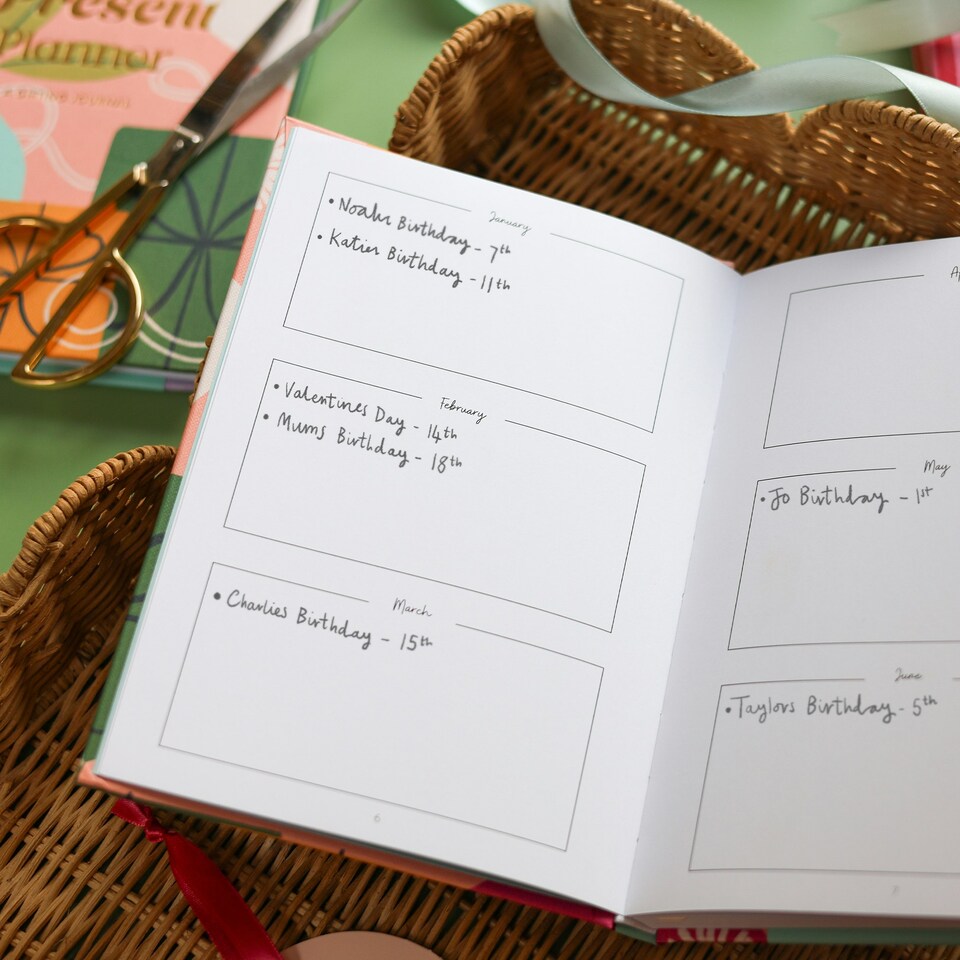 Present
Planner
January
• Noahs Birthday - 7th
• Katies Birthday - 11th
February
• Valentines Day - 14th
• Mums Birthday - 18th
March
• Charlies Birthday - 15th
6
May
• Jo Birthday - 1st
June
• Taylors Birthday - 5th